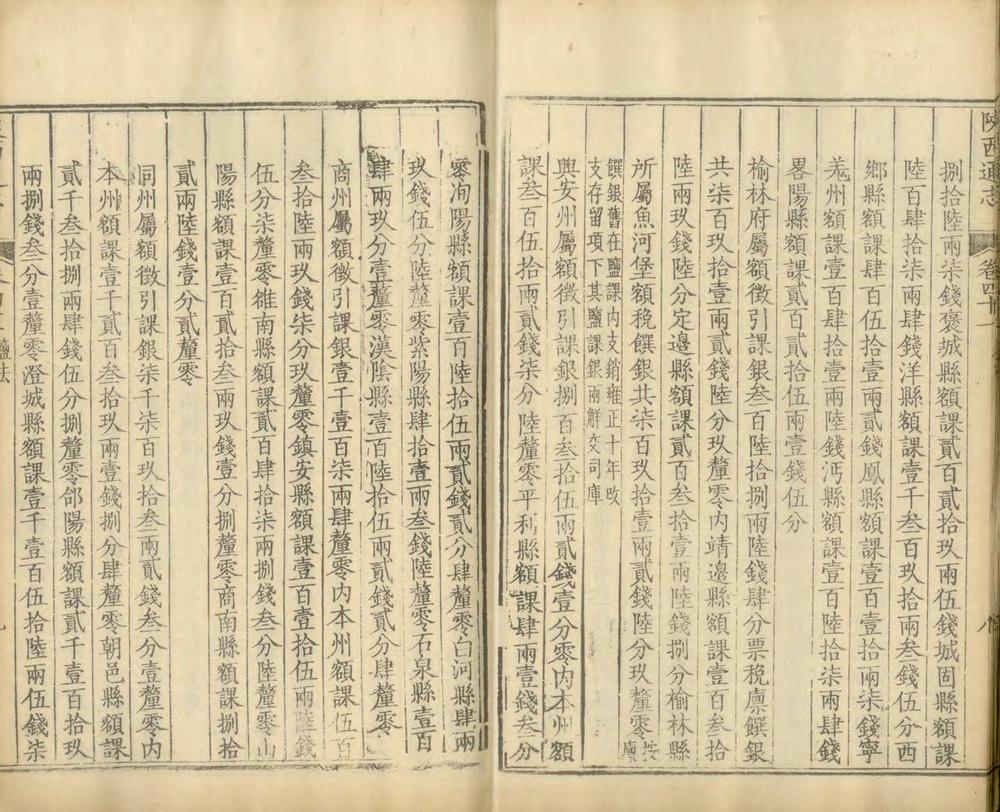 陝西通志
卷四十一
八
捌拾陸兩柒錢褒城縣額課貳百貳拾玖兩伍錢城固縣額課
陸百肆拾柒兩肆錢洋縣額課壹千叁百玖拾兩叁錢伍分西
鄉縣額課肆百伍拾壹兩貳錢鳳縣額課壹百壹拾兩柒錢寧
羌州額課壹百肆拾壹兩陸錢沔縣額課壹百陸拾柒兩肆錢
畧陽縣額課貳百貳拾伍兩壹錢伍分
榆林府屬額徵引課銀叁百陸拾捌兩陸錢肆分票稅廪饌銀
共柒百玖拾壹兩貳錢陸分玖釐零內靖邊縣額課壹百叁拾
陸兩玖錢陸分定邊縣額課貳百叁拾壹兩陸錢捌分榆林縣
所屬魚河堡額稅饌銀共柒百玖拾壹兩貳錢陸分玖釐零按廪
饌銀舊在鹽課內支銷雍正十年改
支存留項下其鹽課銀兩解交司庫
興安州屬額徵引課銀捌百叁拾伍兩貳錢壹分零內本州額
課叁百伍拾兩貳錢柒分陸釐零平利縣額課肆兩壹錢叁分
零洵陽縣額課壹百陸拾伍兩貳錢貳分肆釐零白河縣肆兩
玖錢伍分陸釐零紫陽縣肆拾壹兩叁錢陸釐零石泉縣壹百
肆兩玖分壹釐零漢陰縣壹百陸拾伍兩貳錢貳分肆釐零
商州屬額徵引課銀壹千壹百柒兩肆釐零內本州額課伍百
叁拾陸兩玖錢柒分玖釐零鎮安縣額課壹百壹拾伍兩陸錢
伍分柒釐零雒南縣額課貳百肆拾柒兩捌錢叁分陸釐零山
陽縣額課壹百貳拾叁兩玖錢壹分捌釐零商南縣額課捌拾
貳兩陸錢壹分貳釐零
同州屬額徵引課銀柒千柒百玖拾叁兩貳錢叁分壹釐零內
本州額課壹千貳百叁拾玖兩壹錢捌分肆釐零朝邑縣額課
貳千叁拾捌兩肆錢伍分捌釐零郃陽縣額課貳千壹百拾玖
兩捌錢叁分壹釐零澄城縣額課壹千壹百伍拾陸兩伍錢柒
鹽法
九